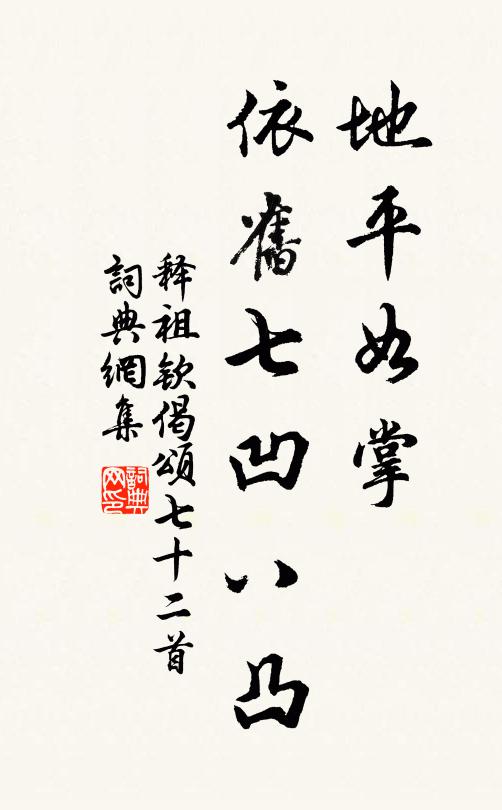 地平如掌
依舊七凹八凸
释祖欽偈頌七十二首
詞典網集
詞典网印